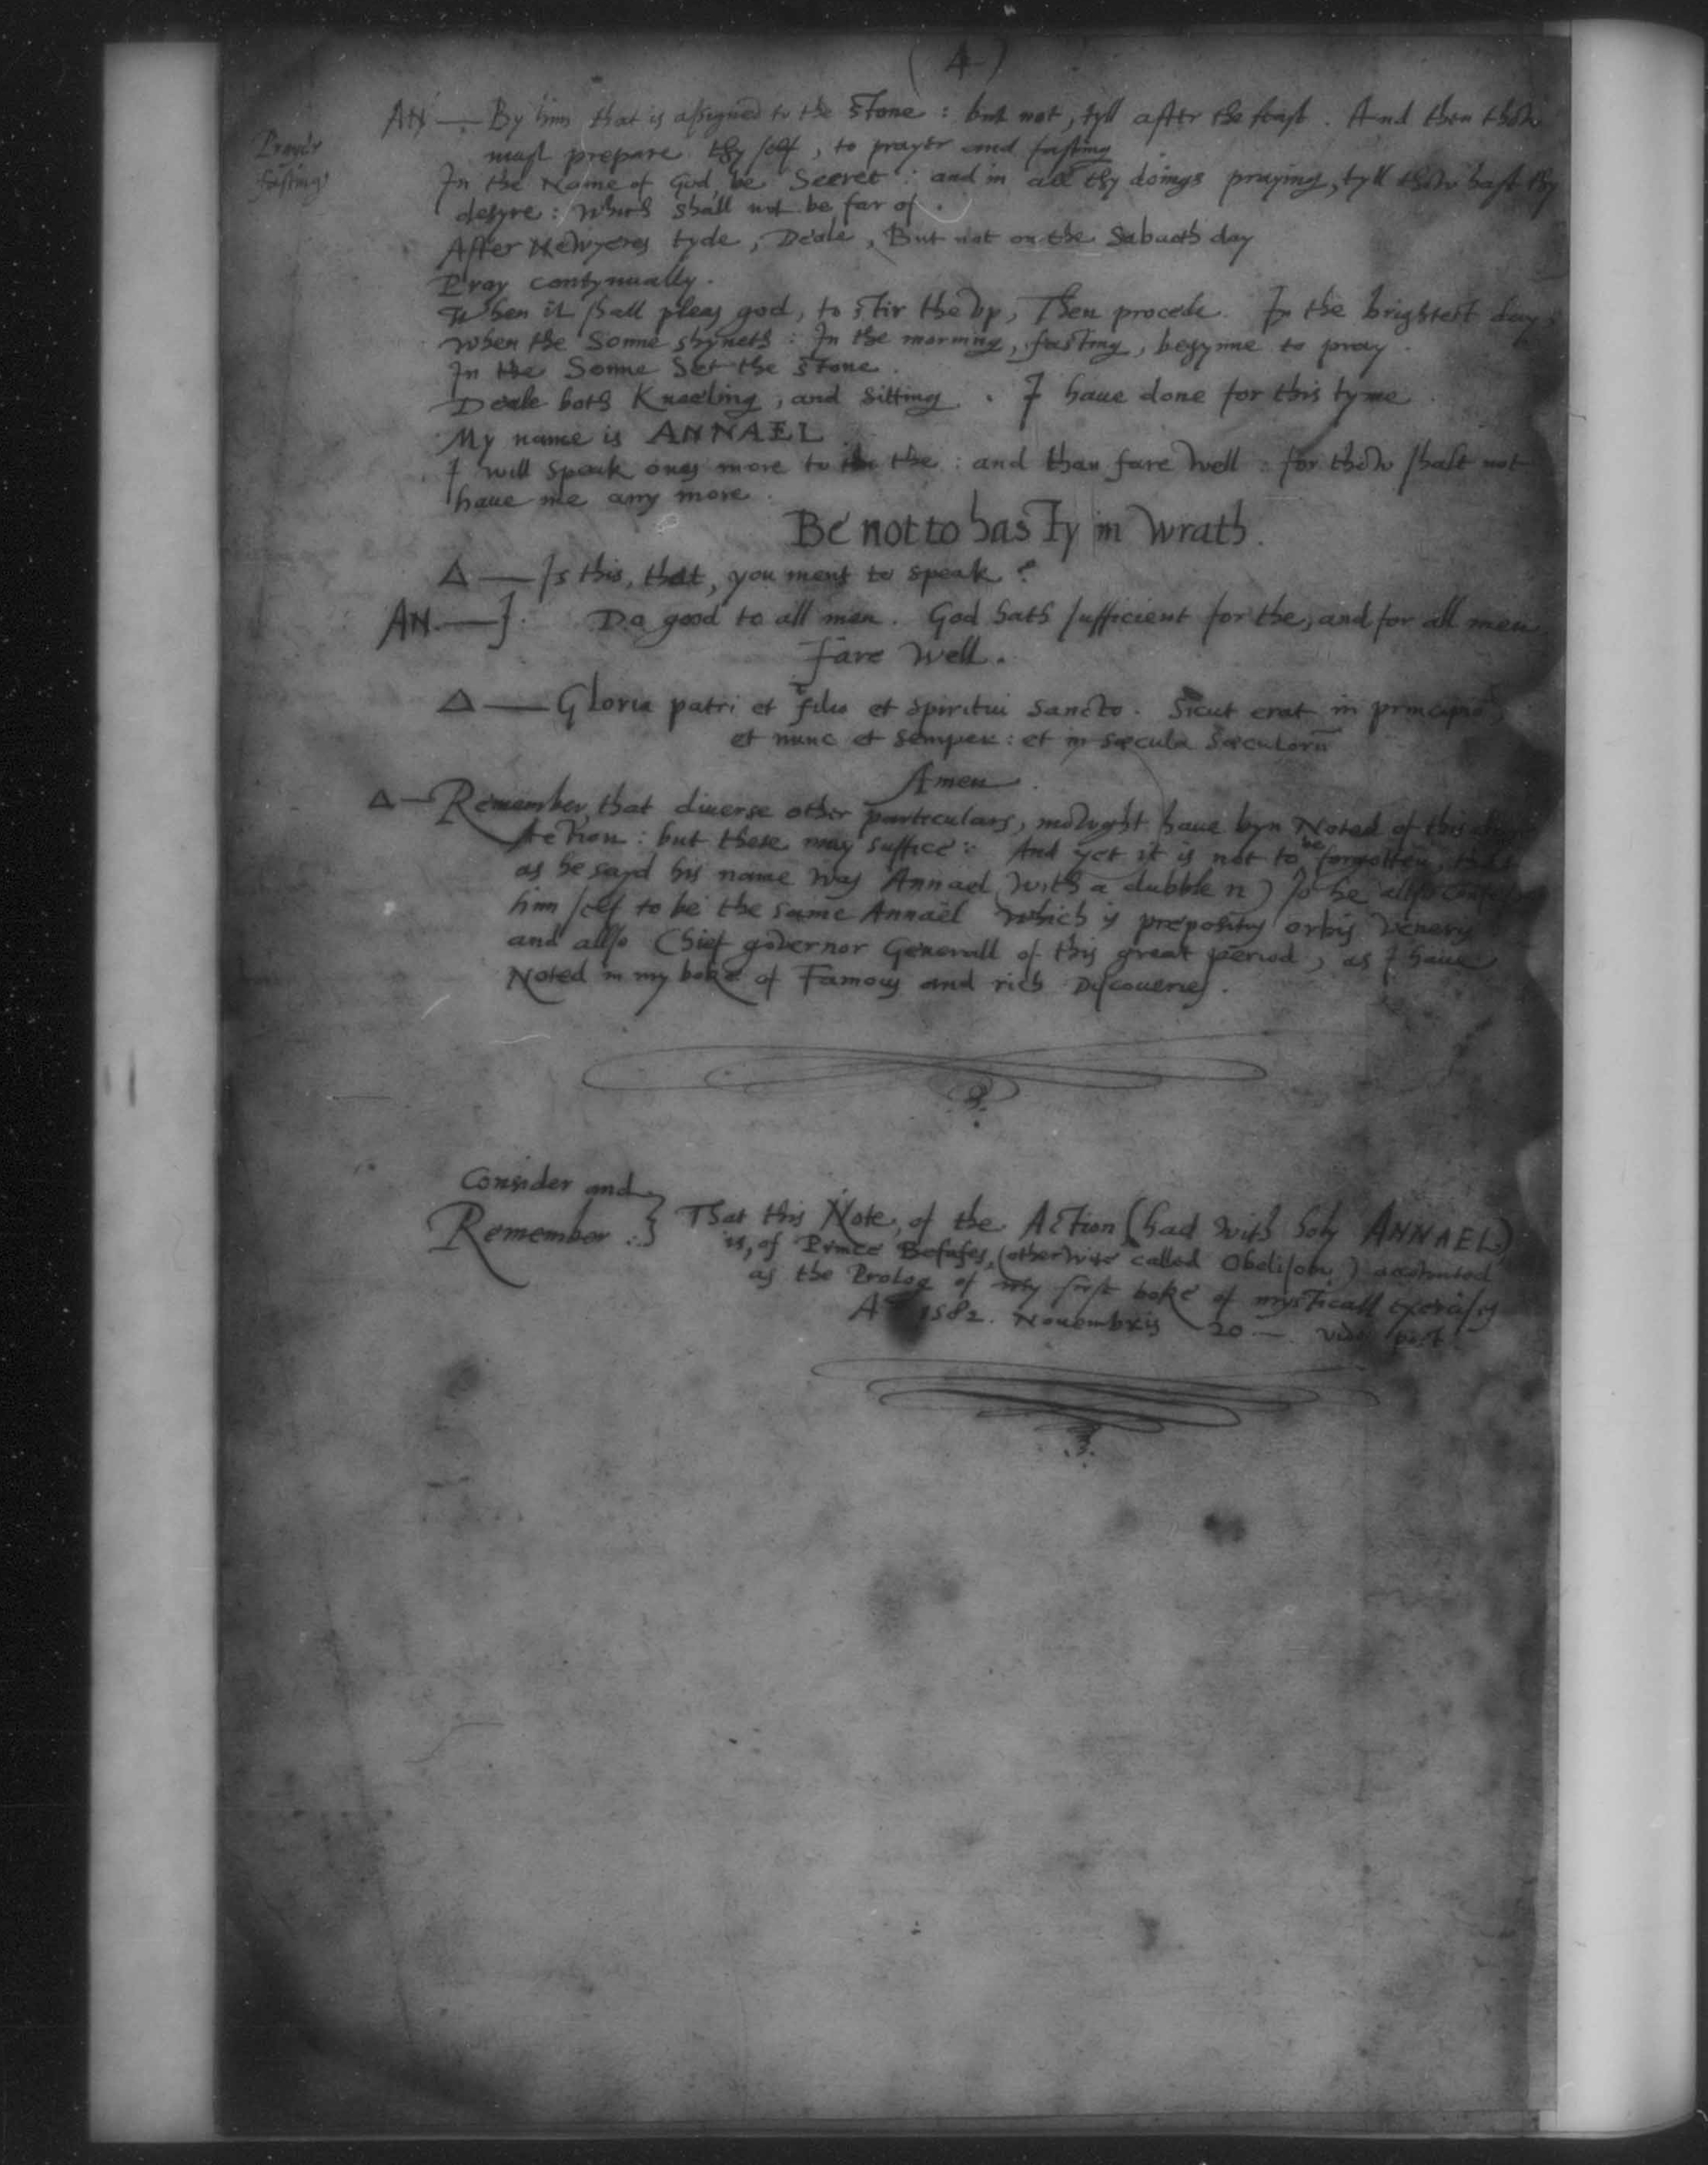 (4)
AN — By him that is assigned to the stone : but not, tyll after the feast. And then thow
Prayer
must prepare thy self, to prayer and fasting
fasting
In the Name of God, be Secret : and in all thy doings praying, tyll thow hast thy
desyre : which shall not be far of.
After Newyeres tyde, Deale, But not on the Sabaoth day
Pray contynually.
When it shall pleas god, to stir the vp, Then procede. In the brightest day,
when the Sonne shyneth : In the morning, fasting, begynne to pray.
In the Sonne Set the stone.
Deale both Kneeling, and sitting. I haue done for this tyme.
My name is ANNAEL.
I will speak ones more to the : and than fare well : for thow shalt not
haue me any more.
Be not to hasty in wrath.
Δ — Is this, that, you ment to speak?
AN. —}. Do good to all men. God hath sufficient for the, and for all men
fare well.
Δ — Gloria patri et filio et spiritui sancto. Sicut erat in principio,
et nunc et semper : et in sæcula sæculorū
Amen.
Δ — Remember, that diuerse other particulars, mowght haue byn Noted of this
Action : but these may suffice : And yet it is not to be forgotten, that
as he sayd his name was Annael (with a dubble n) so he allso
him self to be the same Annael which is prepositus orbis Veneris
and allso Chief governor Generall of this great period, as I haue
Noted in my boke of Famous and rich Discoueries.
Consider and
Remember : } That this Note, of the Action (had with holy ANNAEL)
is, of Prince Befafes, (otherwise called Obelison,) accownted
as the Prolog of my first boke of mysticall exercises
Ao 1582. Nouembris 20 —. vide post.